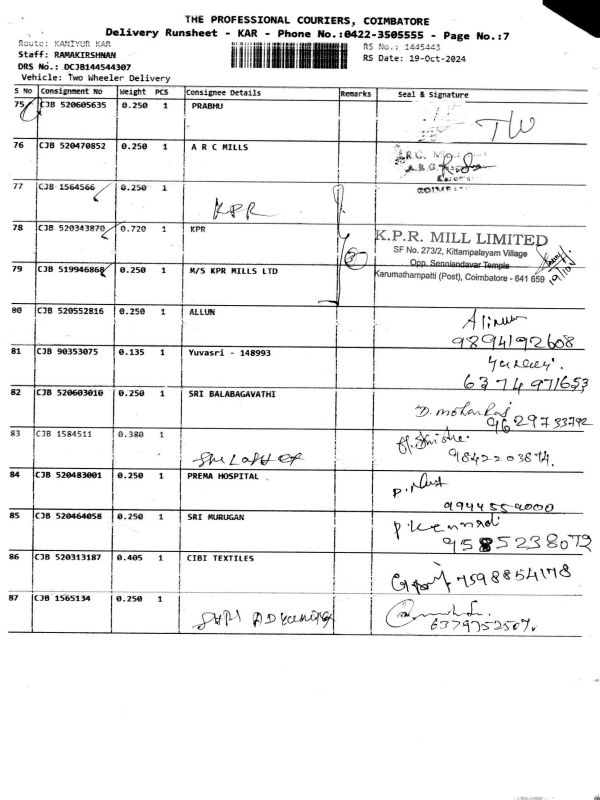 THE PROFESSIONAL COURIERS, COIMBATORE
Delivery Runsheet - KAR - Phone No.:0422-3505555 - Page No.:7
Route: KANIYUR KAR
RS No.: 1445443
Staff: RAMAKIRSHNAN
RS Date: 19-Oct-2024
DRS No.: DCJB144544307
Vehicle: Two Wheeler Delivery
S No Consignment No Weight PCS Consignee Details Remarks Seal & Signature
75 CJB 520605635 0.250 1 PRABHU
76 CJB 520470852 0.250 1 A R C MILLS
77 CJB 1564566 0.250 1 KPR
78 CJB 520343870 0.720 1 KPR
K.P.R. MILL LIMITED
SF No. 273/2, Kittampalayam Village
Opp. Senniandavar Temple
Karumathampatti (Post), Coimbatore - 641 659
3
79 CJB 519946868 0.250 1 M/S KPR MILLS LTD
80 CJB 520552816 0.250 1 ALLUN
9894192608
81 CJB 90353075 0.135 1 Yuvasri - 148993
6374971653
82 CJB 520603010 0.250 1 SRI BALABAGAVATHI
D. mohanraj
9629733792
83 CJB 1584511 0.380 1
9842203874.
84 CJB 520483001 0.250 1 PREMA HOSPITAL
9944559000
85 CJB 520464058 0.250 1 SRI MURUGAN
9585238072
86 CJB 520313187 0.405 1 CIBI TEXTILES
7598854178
87 CJB 1565134 0.250 1
6379752507.